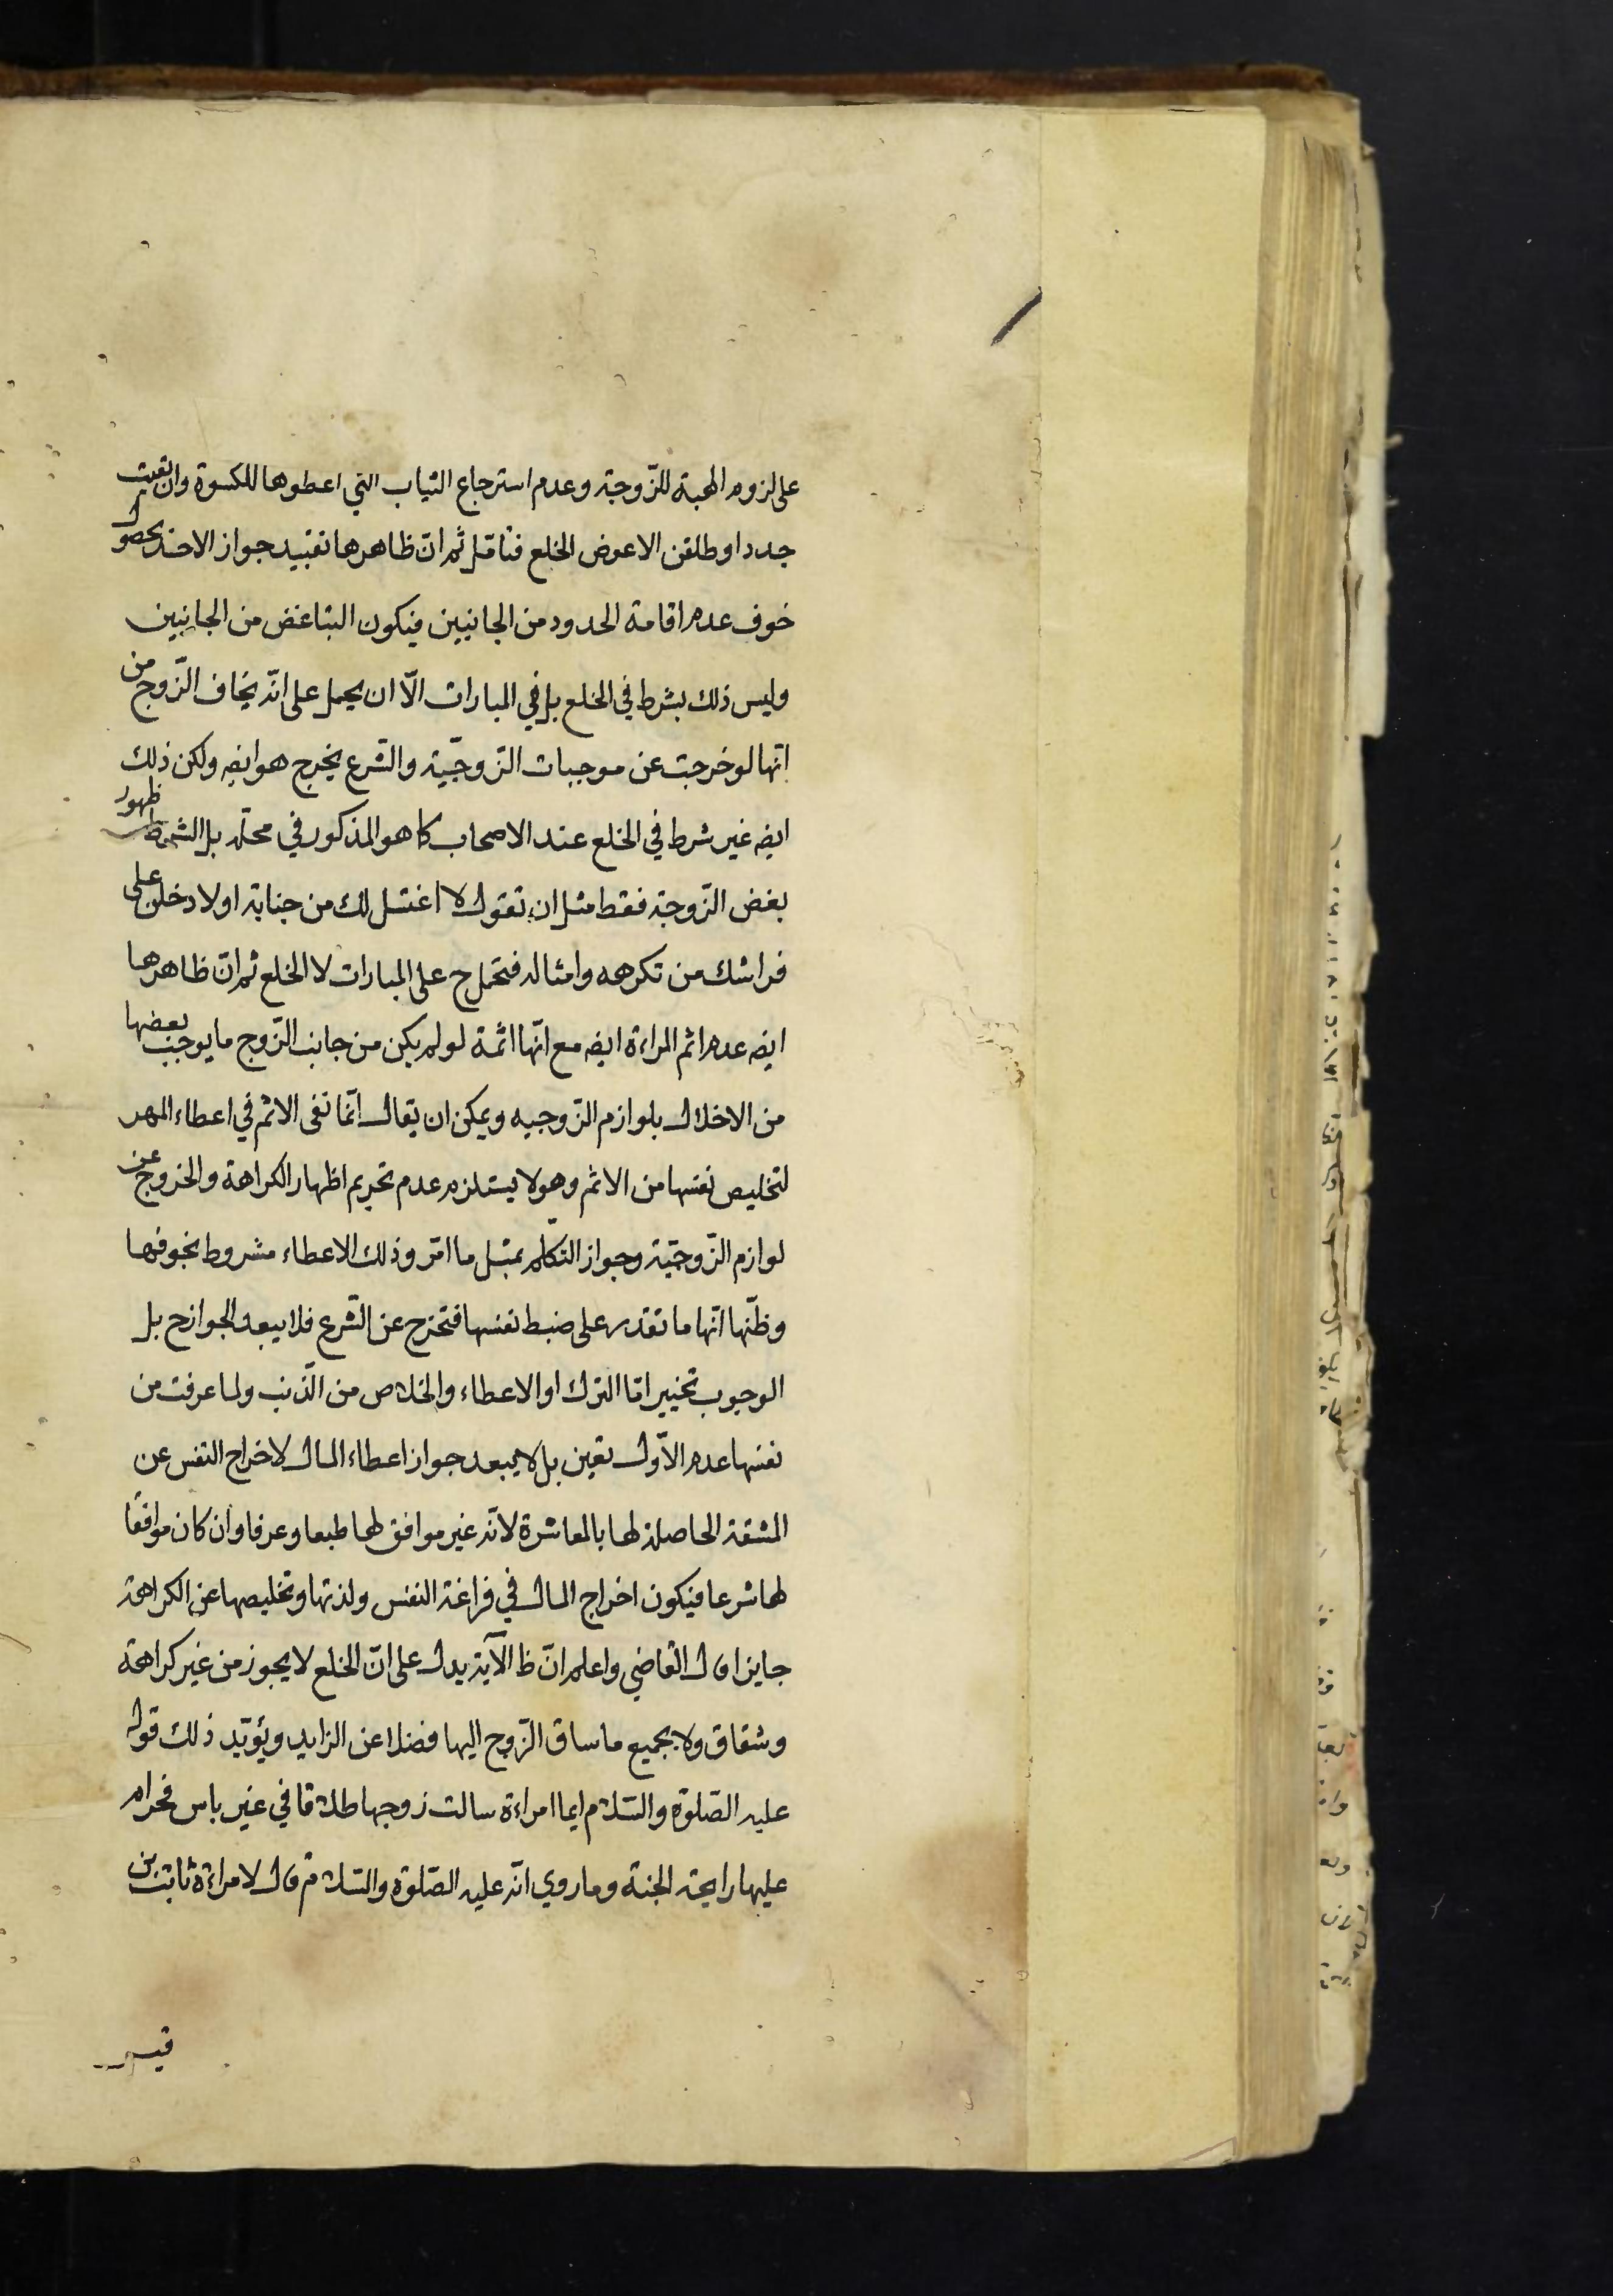 على لزوم الهبة للزّوجة وعدم استرجاع الثياب التي اعطوها للكسوة وان بقيت
جددا وطلقن الا عوض الخلع فتامّل ثم انّ ظاهرها تقييد جواز الاخذ بحصول
خوف عدم اقامة الحدود من الجانبين فيكون التباغض من الجانبين
وليس ذلك بشرط في الخلع بل في المبارات الّا ان يحمل على انّه يخاف الزّوج من
انّها لو خرجت عن موجبات الزّوجيّة والشّرع يخرج هو ايضه ولكن ذلك
ايضه غير شرط في الخلع عند الاصحاب كما هو المذكور في محلّه بل الشرط ظهور
بغض الزّوجة فقط مثل ان تقول لا اغتسل لك من جنابة او لادخلن على
فراشك من تكرهه وامثاله فتحمل ح على المبارات لا الخلع ثم انّ ظاهرها
ايضه عدم اثم المراءة ايضه مع انّها اثمة لو لم يكن من جانب الزّوج ما يوجب بعضها
من الاخلال بلوازم الزّوجيه ويمكن ان يقال انّما نفى الاثم في اعطاء المهر
لتخليص نفسها من الاثم وهو لا يستلزم عدم تحريم اظهار الكراهة والخروج عن
لوازم الزّوجيّة وجواز التكلّم بمثل ما امرّ وذلك الاعطاء مشروط بخوفها
وظنّها انّها ما تقدر على ضبط نفسها فتخرج عن الشّرع فلا يبعد الجواز ح بل
الوجوب تخيير امّا الترك او الاعطاء والخلاص من الذّنب ولما عرفت من
نفسها عدم الاّول تعين بل لا يبعد جواز اعطاء المال لاخراج النفس عن
المشقة الحاصلة لها بالمعاشرة لانه غير موافق لها طبعا وعرفا وان كان موافقا
لها شرعا فيكون اخراج المال في فراغة النفس ولذتها وتخليصها عن الكراهة
جايزا قال القاضي واعلم انّ ظ الآية يدل على انّ الخلع لا يجوز من غير كراهة
وشقاق ولا بجميع ما ساق الزّوج اليها فضلا عن الزايد ويؤيّد ذلك قوله
عليه الصّلوة والسّلام ايما امراءة سالت زوجها طلاقا في غير باس فحرام
عليها رايحة الجنة وما روي انّه عليه الصّلوة والسّلام قال لامراءة ثابت بن
قيس